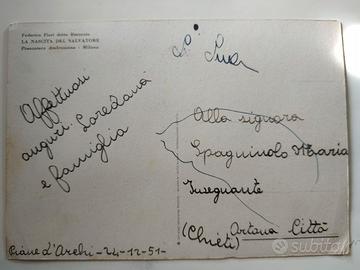 Federico Fiori detto Baroccio
LA NASCITA DEL SALVATORE
Pinacoteca Ambrosiana - Milano
Affettuosi
auguri Loredana
e famiglia
Alla signora
Spagniolo Maria
Insegnante
Ortona Città
(Chieti)
Piane d'Archi - 24-12-51-
subito